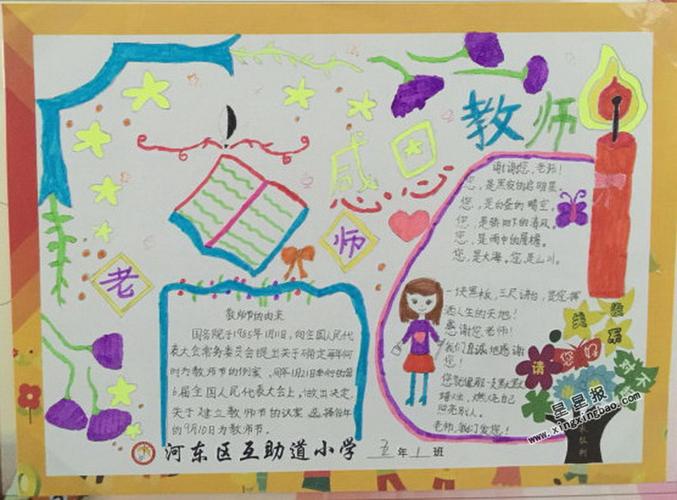 感恩教师
老师
谢谢您,老师!
您,是黑夜的启明星.
您,是白昼的晴空.
您,是骄阳下的清风.
您,是雨中的屋檐.
您,是大海。您,是山川.
一块黑板,三尺讲台,是您挥
洒人生的天地!
感谢您老师!
我们真诚地感谢
您!
您就像那一支默默
蜡烛,燃烧自己
照亮别人。
老师,我们爱您!
教师节的由来
国务院于1985年1月11日,向全国人民代
表大会常务委员会提出关于确定每年何
时为教师节的
6届全国人民代表大会上,做出决定.
关于建立教师节的议案,选择每年
的9月10日为教师节。
请
您好
星星报
www.xingxingbao.com
河东区互助道小学 五年1班